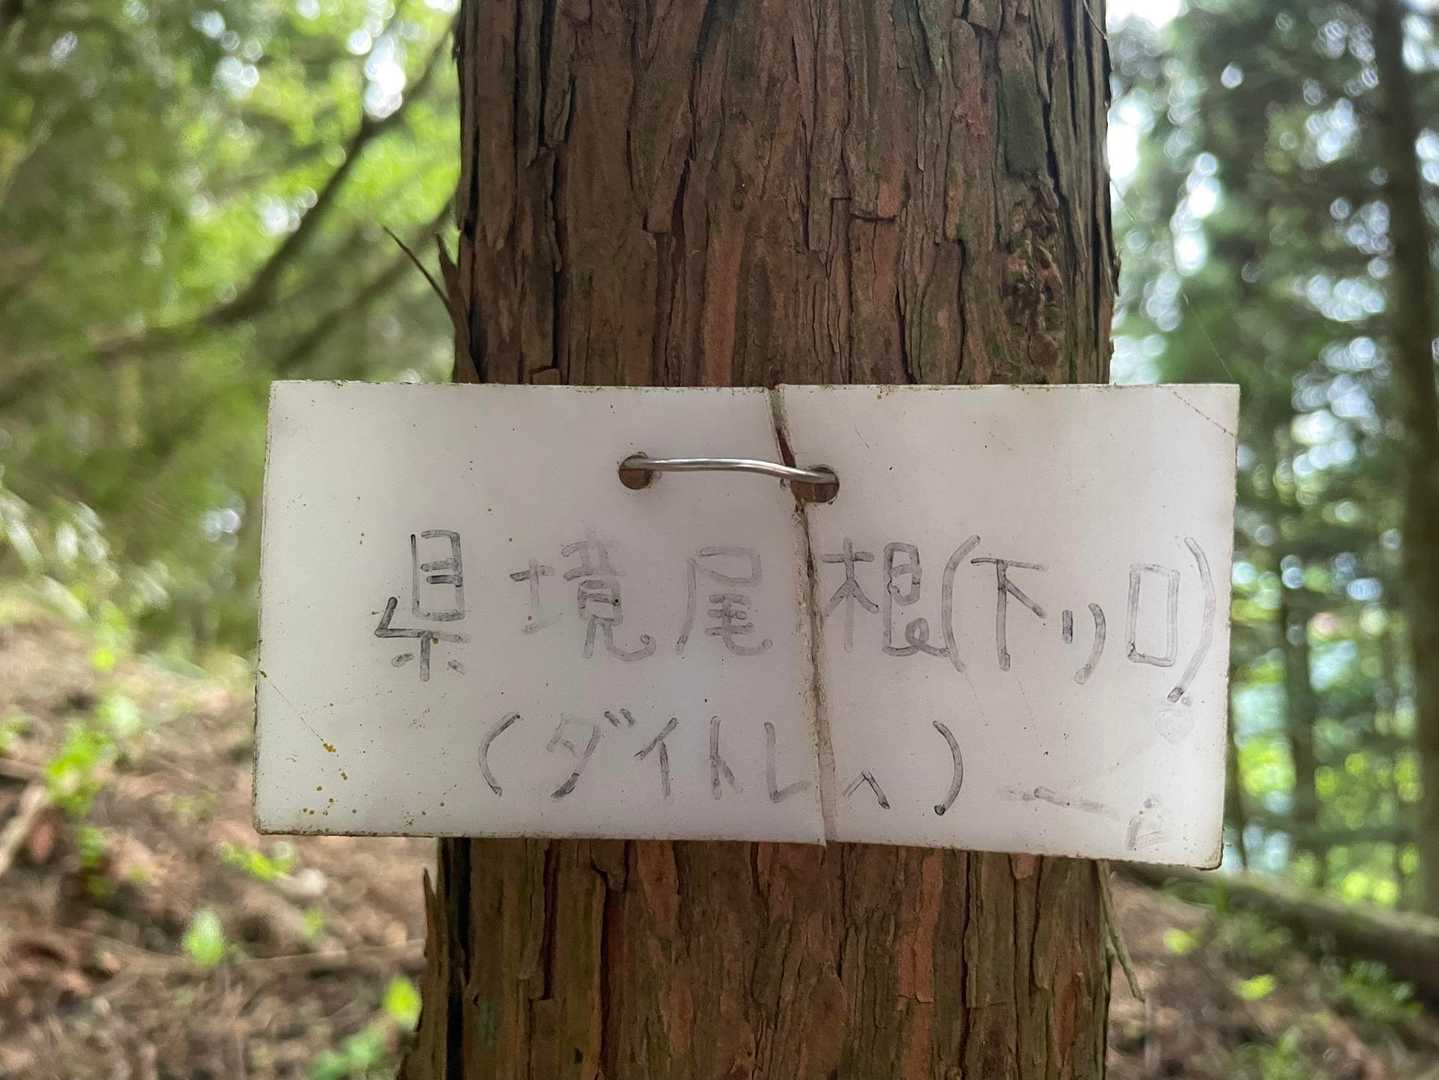 県境尾根(下り口)
(ダイトレへ)